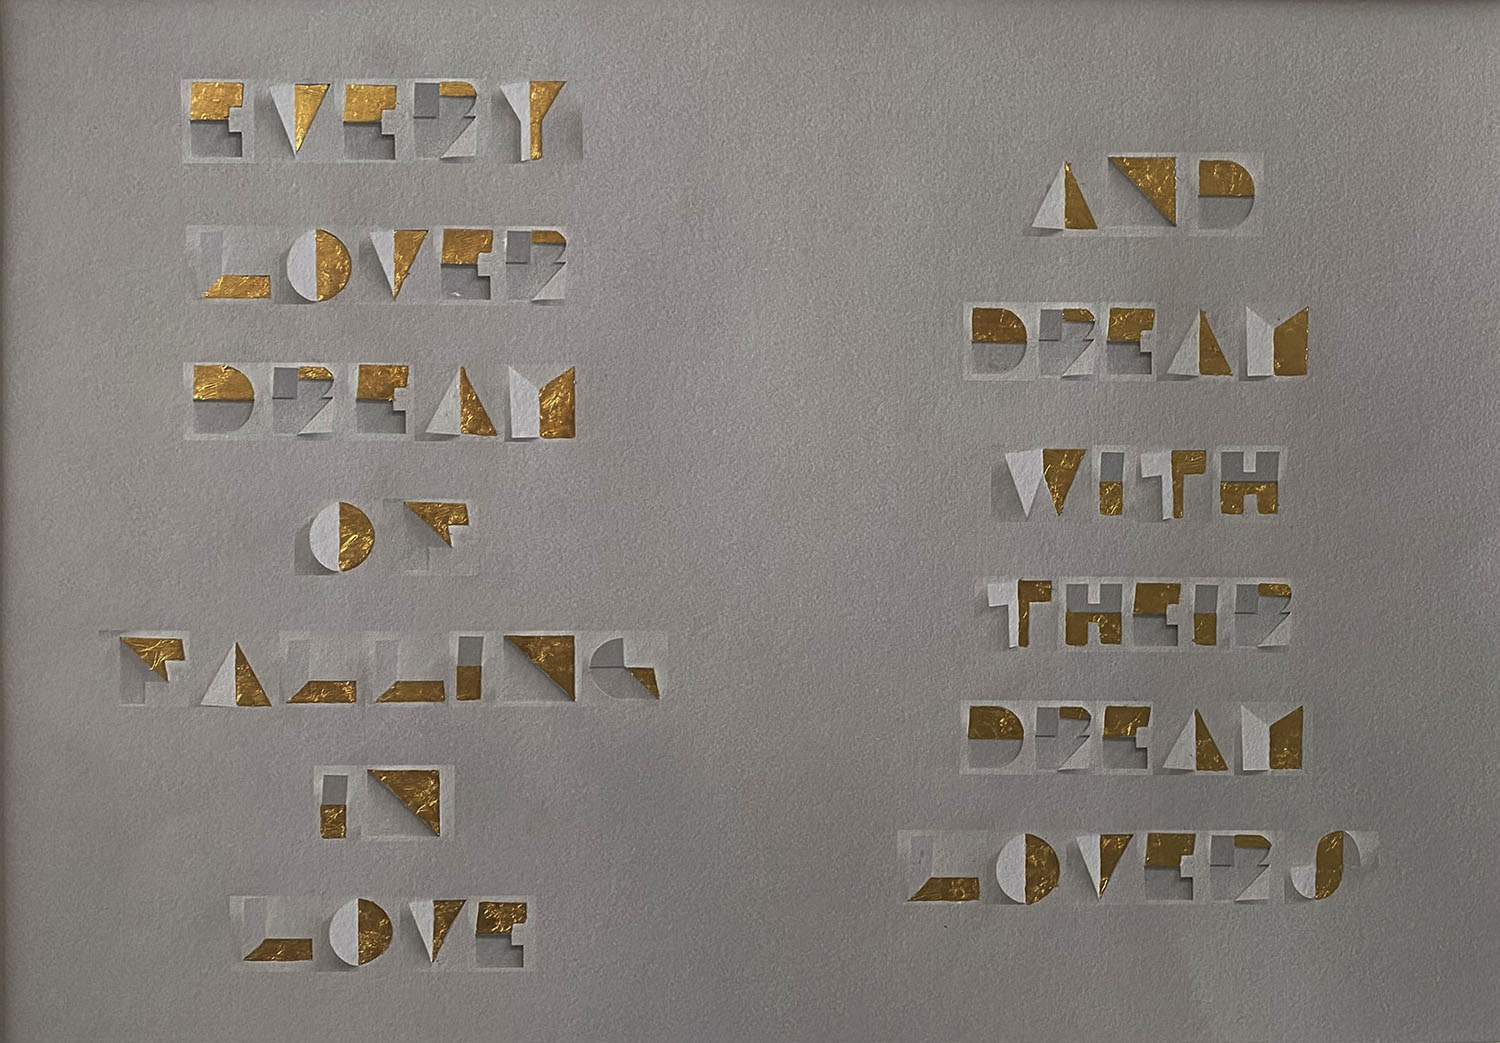 EVERY
LOVER
DREAM
OF
FALLING
IN
LOVE
AND
DREAM
WITH
THEIR
DREAM
LOVERS